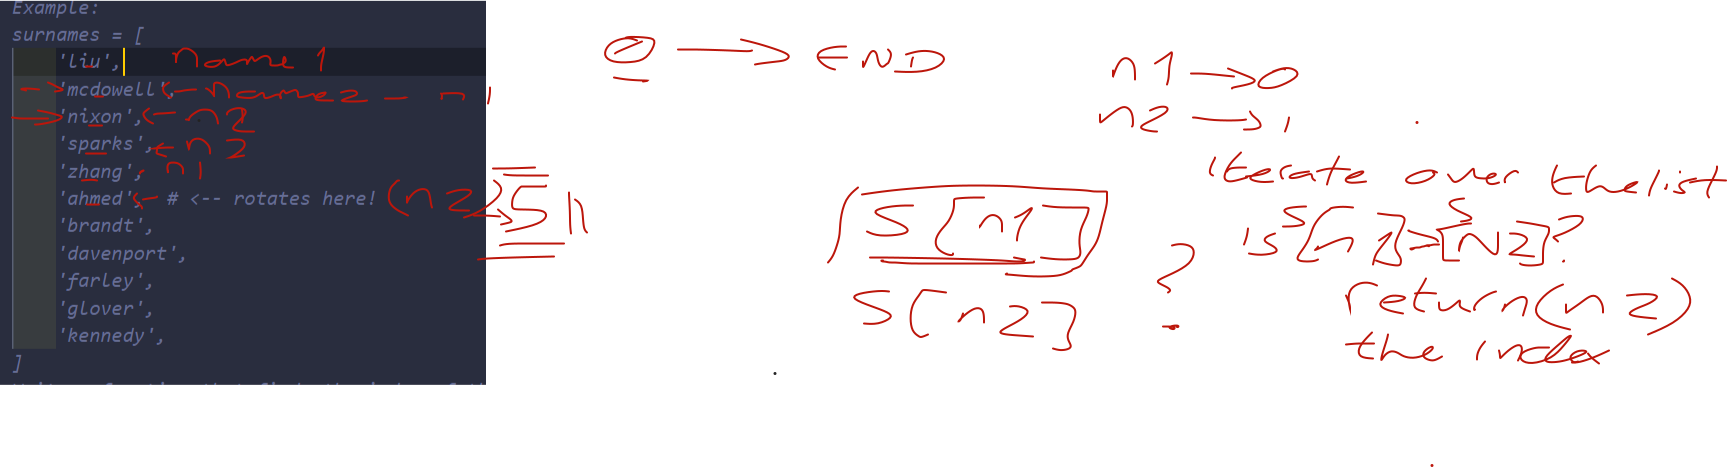 Example:
surnames = [
'liu', name 1
'mcdowell', name2 - n1
'nixon', n2
'sparks', n2
'zhang', n1
'ahmed', # <-- rotates here! (n2) 5
'brandt',
'davenport',
'farley',
'glover',
'kennedy',
]
0 → END
n1 → 0
n2 → 1
iterate over the list
S[n1]
S[n2]
?
is S[n1] > S[n2]?
return(n2)
the index